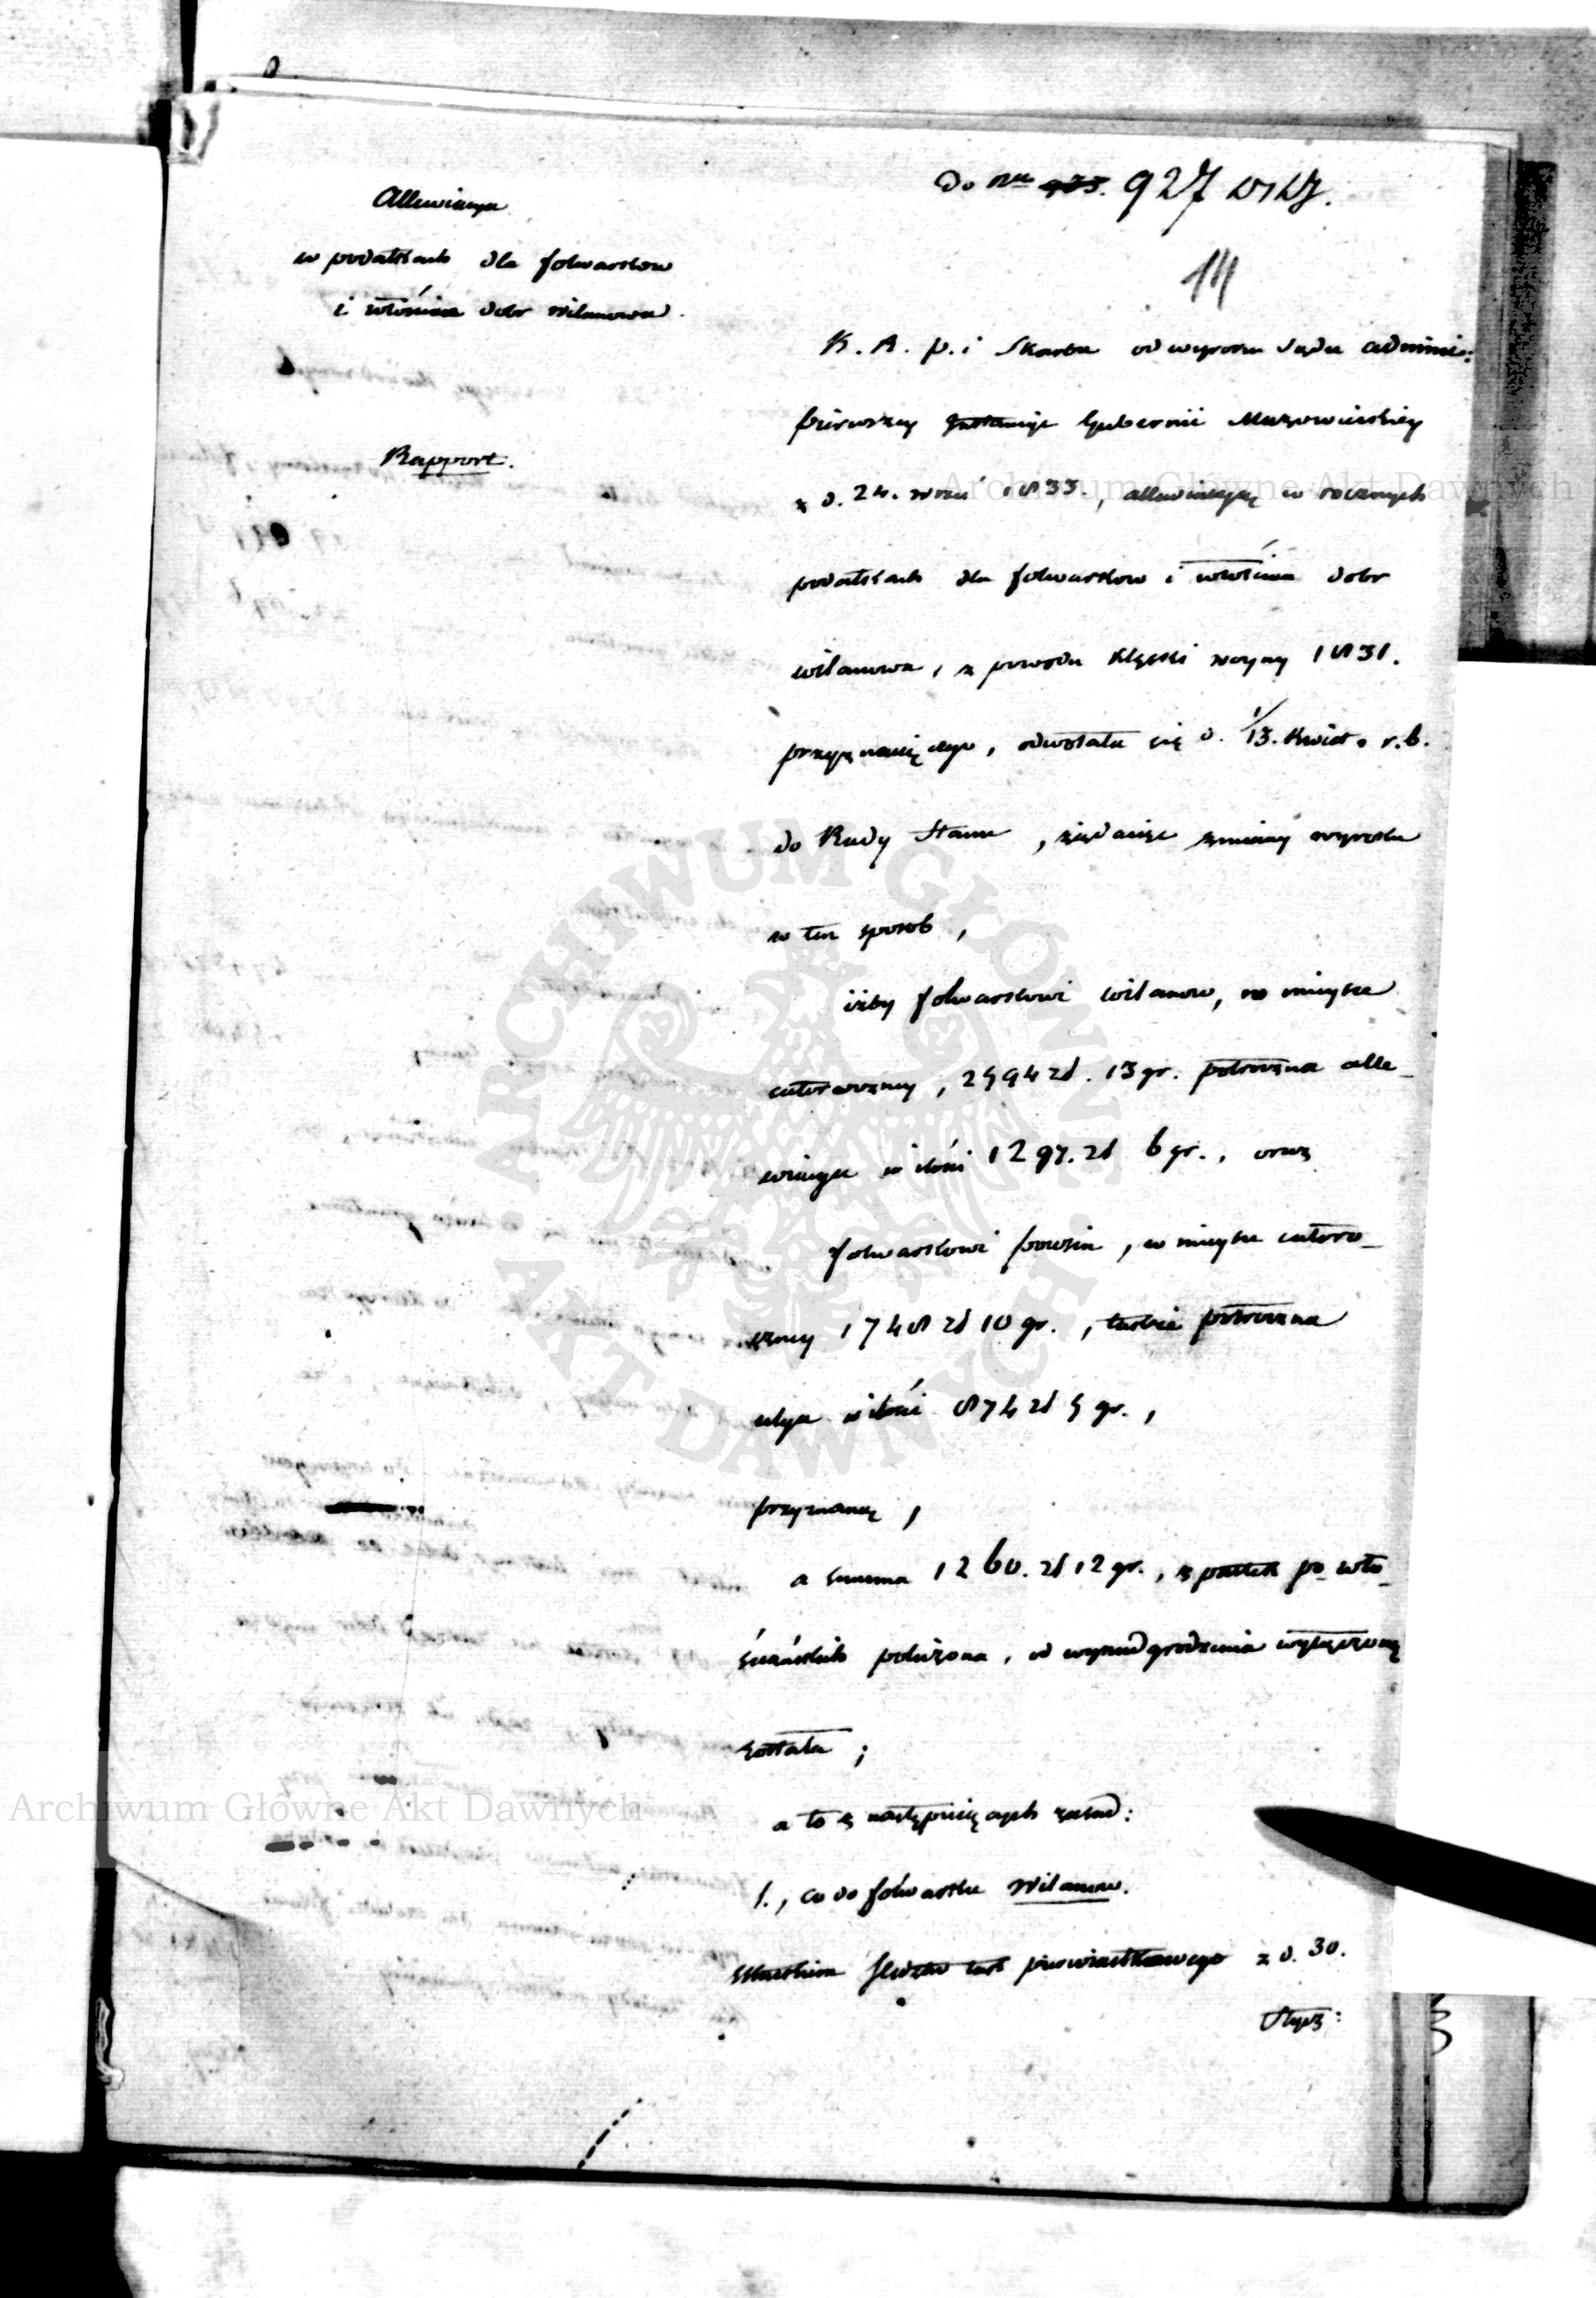 Do Nru 927 
14
Allewiacya
w podatkach dla folwarkow
i włościan dobr Wilanowa.
Rapport.
K. R. P. i Skarbu od wyroku Sądu admini:
pierwszey Instancyi Gubernii Mazowieckiey
z d. 24. Wrześ 1833., allewiacyą w rocznych
podatkach dla folwarkow i włościan dobr
Wilanowa, z powodu klęski woyny 1831.
przyznaiącego, odwołała się d. 1/13. Kwiet. r. b.
do Rady Stanu, żądaiąc zmiany wyroku
w ten sposob,
iżby folwarkowi Wilanow, w mieysce
całoroczney, 2594 zł. 13 gr. połroczna alle-
wiacya w ilości 1297. zł 6 gr., oraz
folwarkowi Powsin, w mieysce całoro-
czney 1748 zł 10 gr., także połroczna
ulga w ilości 874 zł 5 gr.,
przyznaną,
a summa 1260. zł 12 gr., z pustek po wło-
ściańskich policzona, od wynadgrodzenia wyłączoną
została;
a to z następuiących zasad:
1., co do folwarku Wilanow.
pierwiastkowego z d. 30.
Stycz:
Archiwum Główne Akt Dawnych
Archiwum Główne Akt Dawnych
ARCHIWUM GŁÓWNE AKT DAWNYCH